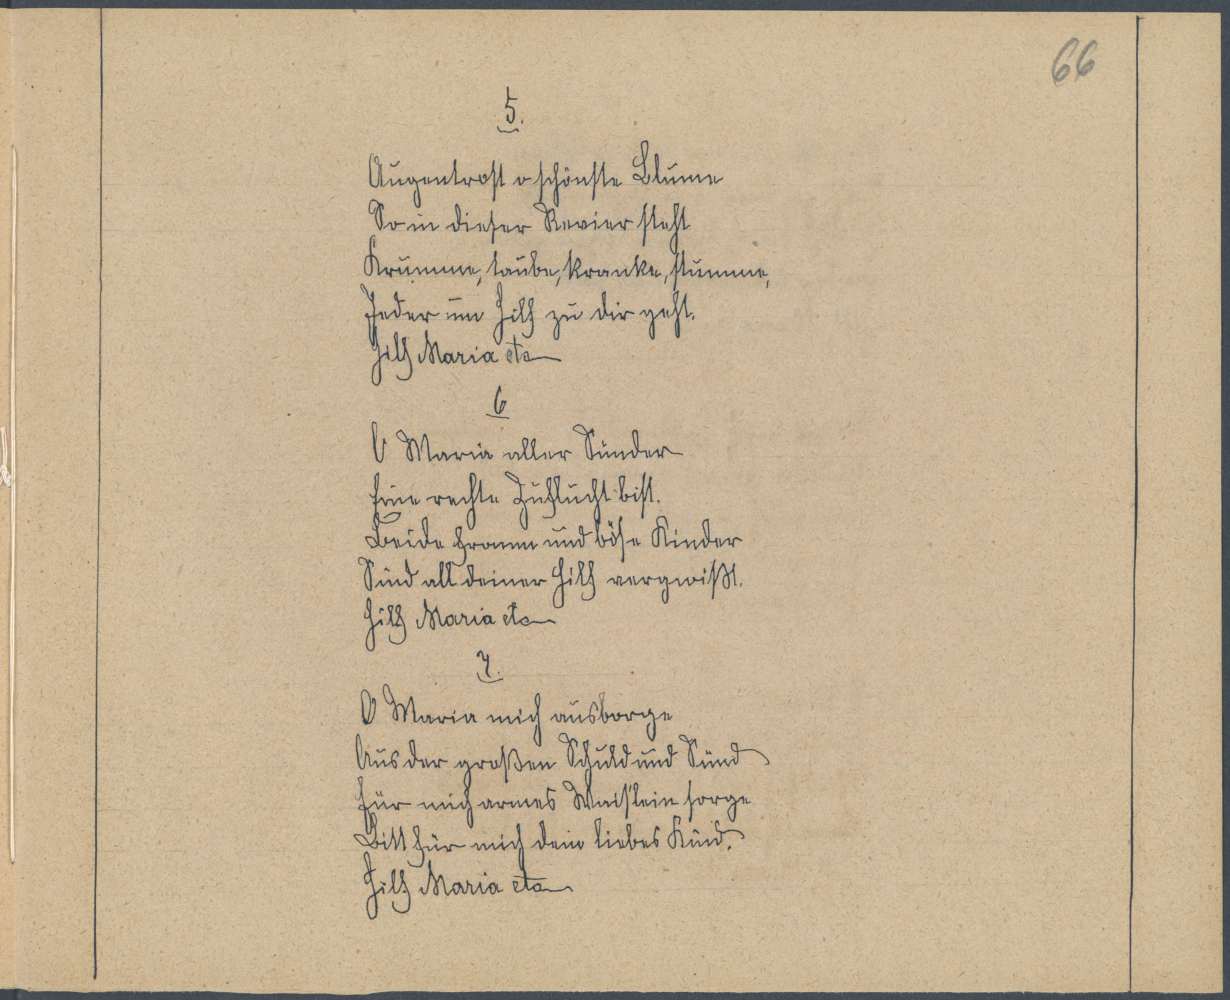 66
5.
Augentrost o schönste Blume
So in dieser Revier steht
Krumme, taube, kranke, stumme,
Jeder um Hilf zu dir geht.
Hilf Maria etc
6
O Maria aller Sünder
Eine rechte Zuflucht bist.
Beide fromm und böse Kinder
Sind all deiner Hilf vergwißt.
Hilf Maria etc
7.
O Maria mich ausborge
Aus der großen Schuld und Sünd
Für mich armes Waislein sorge
Bitt für mich dein liebes Kind.
Hilf Maria etc